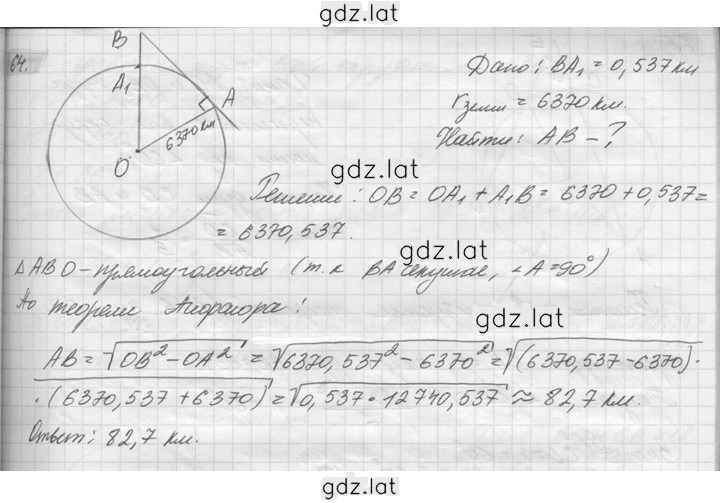 gdz.lat
64.
B
A₁
A
O
6370 км
Дано: BA₁ = 0,537 км
rземли = 6370 км.
Найти: AB - ?
gdz.lat
Решение: OB = OA₁ + A₁B = 6370 + 0,537 =
= 6370,537.
gdz.lat
△ABO - прямоугольный (т.к BA секущае, ∠A = 90°)
По теореме Пифагора:
gdz.lat
AB = √OB² - OA² = √6370,537² - 6370² = √(6370,537 - 6370) ·
· (6370,537 + 6370) = √0,537 · 12740,537 ≈ 82,7 км.
Ответ: 82,7 км.
gdz.lat
gdz.lat